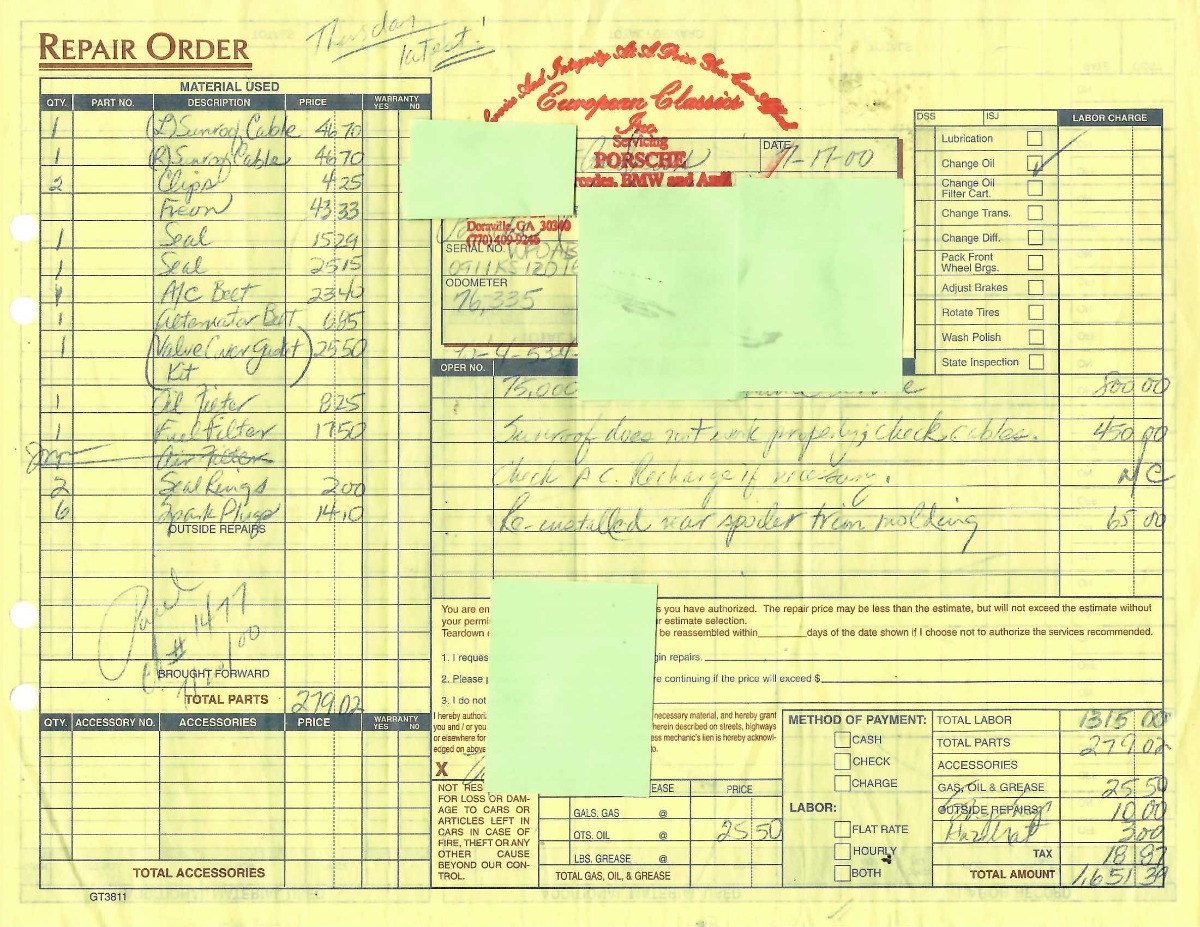 Thursday
latest!
REPAIR ORDER
MATERIAL USED
QTY. PART NO. DESCRIPTION PRICE WARRANTY YES NO
1 (L) Sunroof Cable 46 70
1 (R) Sunroof Cable 46 70
2 Clips 4 25
Freon 43 33
1 Seal 15 29
1 Seal 25 15
1 A/C Belt 23 40
1 Alternator Belt 6 85
1 (Valve Cover Gasket 25 50
Kit)
1 Oil Filter 8 25
1 Fuel Filter 17 50
Air Filter
2 Seal Rings 2 00
6 Spark Plugs 14 10
OUTSIDE REPAIRS
Paid
# 1477
BROUGHT FORWARD
TOTAL PARTS 279 02
QTY. ACCESSORY NO. ACCESSORIES PRICE WARRANTY YES NO
TOTAL ACCESSORIES
GT3811
Service And Integrity At A Price You Can Afford
European Classics
Inc.
Servicing
PORSCHE
BMW and Audi
DATE
11-17-00
Doraville, GA 30340
(770) 409-9246
SERIAL NO. WPOAB
0911KS12D16
ODOMETER
76,335
OPER NO.
75,000 800 00
Sunroof does not work properly; check cables. 450 00
Check A C. Recharge if necessary. N/C
Re-installed rear spoiler trim molding 65 00
DSS ISJ LABOR CHARGE
Lubrication
Change Oil
Change Oil
Filter Cart.
Change Trans.
Change Diff.
Pack Front
Wheel Brgs.
Adjust Brakes
Rotate Tires
Wash Polish
State Inspection
You are en s you have authorized. The repair price may be less than the estimate, but will not exceed the estimate without
your permi r estimate selection.
Teardown be reassembled within ________ days of the date shown if I choose not to authorize the services recommended.
1. I reques gin repairs.
2. Please re continuing if the price will exceed $
3. I do not
I hereby authoriz necessary material, and hereby grant
you and / or you herein described on streets, highways
or elsewhere for ess mechanic's lien is hereby acknowl-
edged on above
X
NOT RES
FOR LOSS OR DAM-
AGE TO CARS OR
ARTICLES LEFT IN
CARS IN CASE OF
FIRE, THEFT OR ANY
OTHER CAUSE
BEYOND OUR CON-
TROL.
EASE PRICE
GALS. GAS @
QTS. OIL @ 25 50
LBS. GREASE @
TOTAL GAS, OIL, & GREASE
METHOD OF PAYMENT:
CASH
CHECK
CHARGE
LABOR:
FLAT RATE
HOURLY
BOTH
TOTAL LABOR 1315 00
TOTAL PARTS 279 02
ACCESSORIES
GAS, OIL & GREASE 25 50
OUTSIDE REPAIRS 10 00
Haz Mat 3 00
TAX 18 87
TOTAL AMOUNT 1,651 39